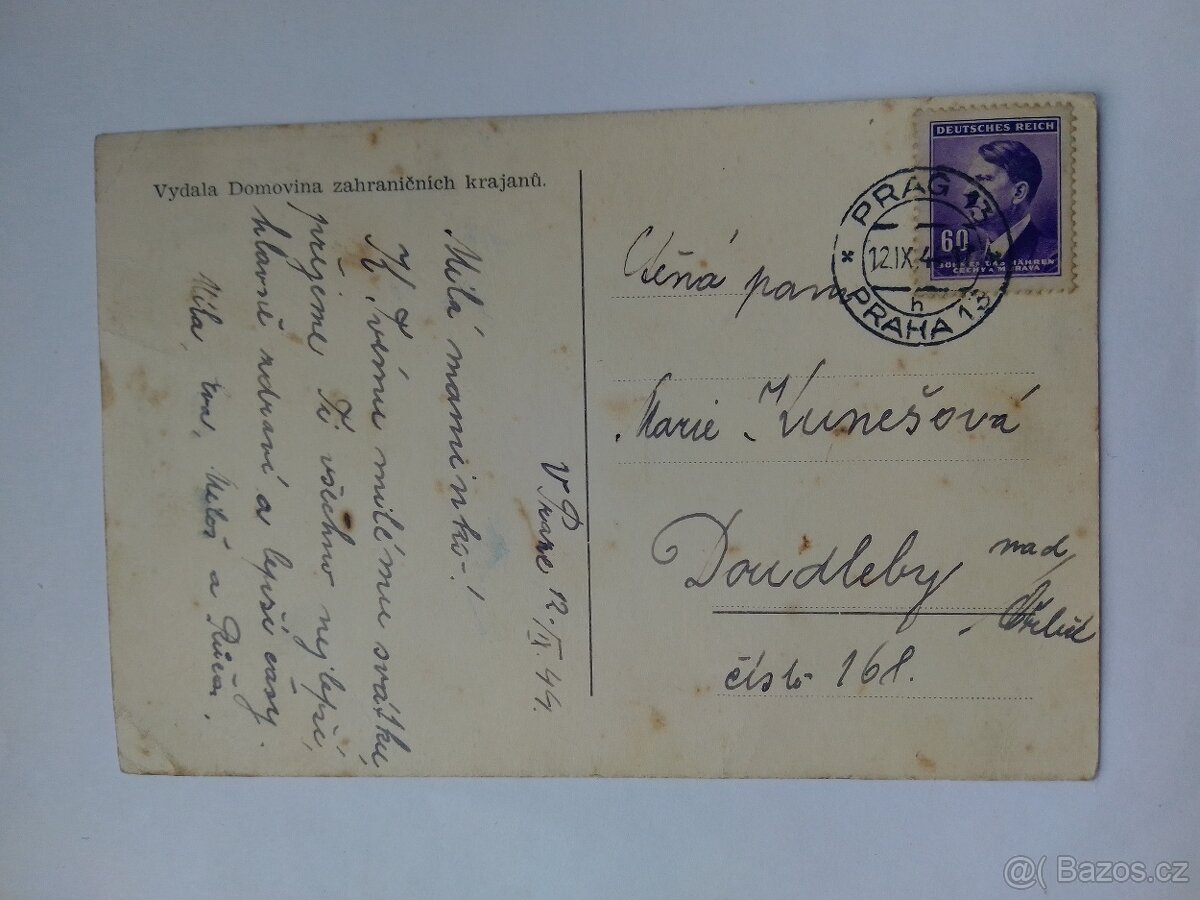 Vydala Domovina zahraničních krajanů.
V Praze 12./IX. 44.
Milá maminko-!
K Tvému milému svátku,
přejeme Ti všechno nejlepší,
hlavně zdraví a lepší časy.
Míla, Eva, Miloš a Růža.
DEUTSCHES REICH
60
BÖHMEN UND MÄHREN
ČECHY A MORAVA
PRAG 13
12.IX.4
h
PRAHA 13
Ctěná paní
Marie Kunešová
Doudleby nad
Orlicí
číslo 168.
@( Bazos.cz